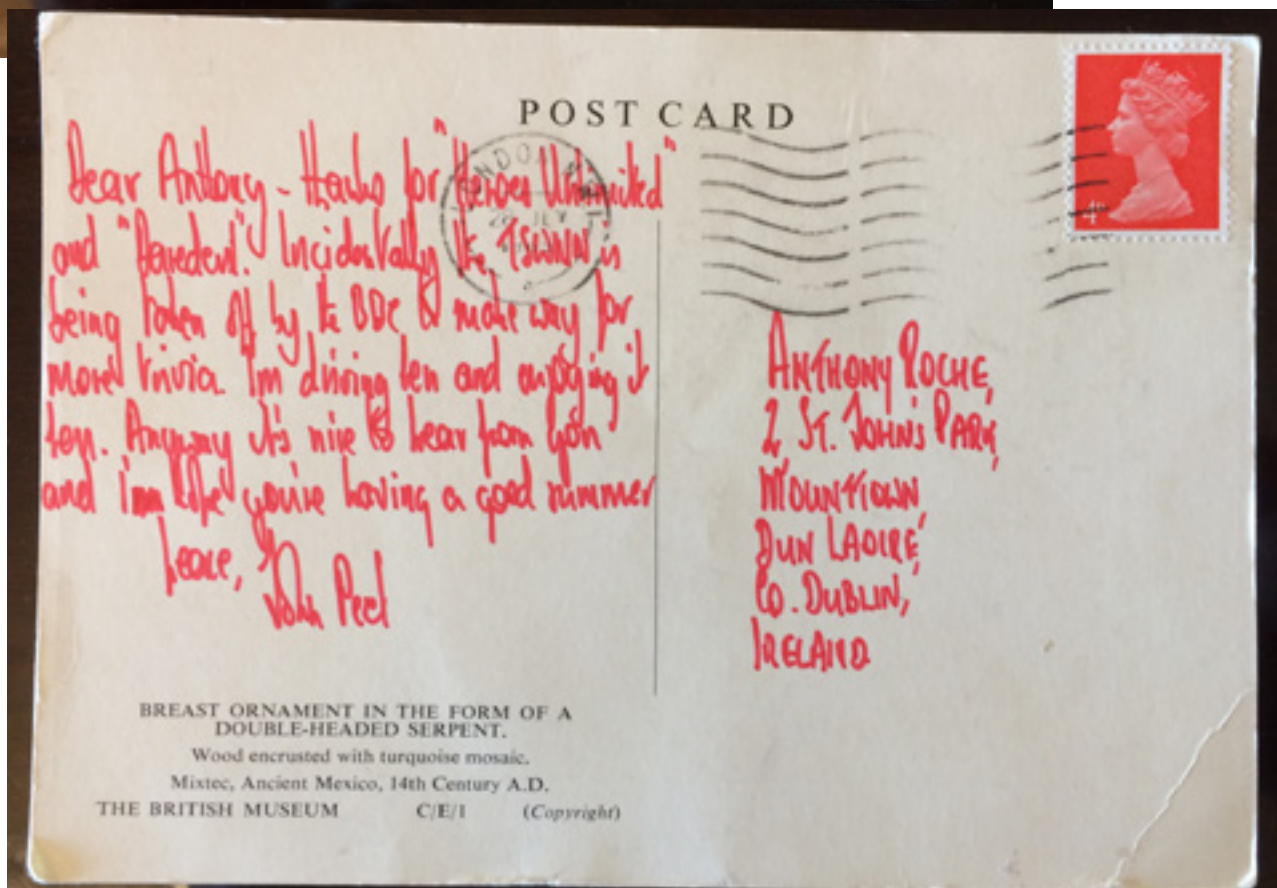 POST CARD
Dear Anthony - Thanks for "Heroes Unlimited"
and "
Incidentally the
is
being taken off by the BBC to make way for
more trivia. I'm
and enjoying it
Anyway it's nice to hear from you
and I'm
you're having a good summer
Peace,
John Peel
LONDON
4D
ANTHONY ROCHE,
2 ST. JOHNS PARK,
MOUNTTOWN
DUN LAOIRE,
CO. DUBLIN,
IRELAND
BREAST ORNAMENT IN THE FORM OF A
DOUBLE-HEADED SERPENT.
Wood encrusted with turquoise mosaic.
Mixtec, Ancient Mexico, 14th Century A.D.
THE BRITISH MUSEUM C/E/1 (Copyright)